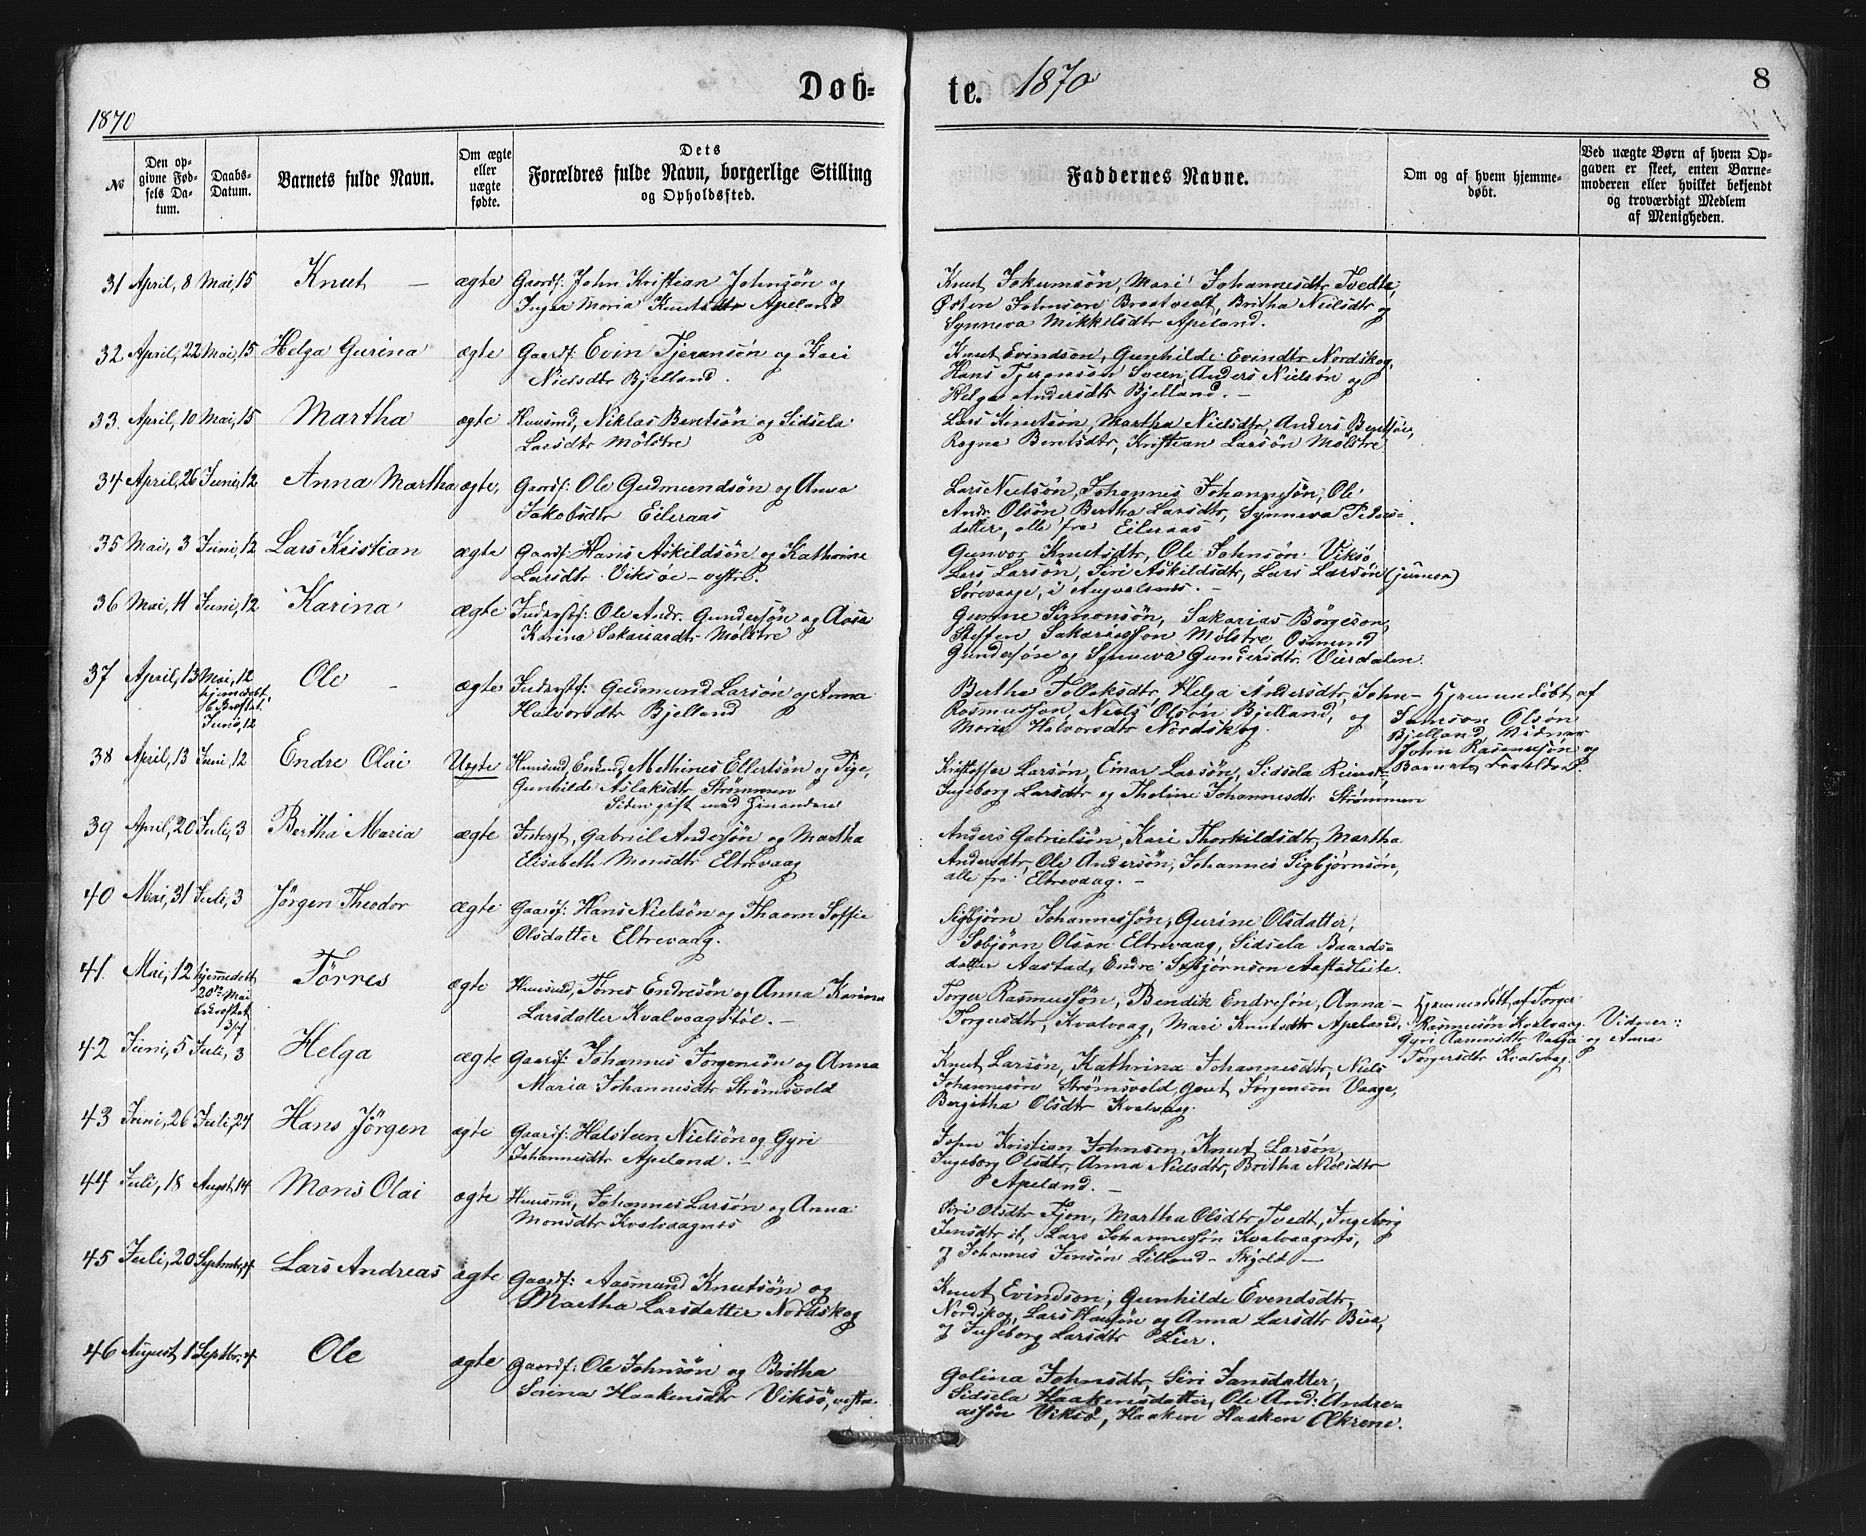 Døb-
te. 1870
8
1870
No
Den op-
givne Fød-
sels Da-
tum.
Daabs-
Datum.
Barnets fulde Navn.
Om ægte
eller
uægte
fødte.
Dets
Forældres fulde Navn, borgerlige Stilling
og Opholdssted.
Faddernes Navne.
Om og af hvem hjemme-
døbt.
Ved uægte Børn af hvem Op-
gaven er skeet, enten Barne-
moderen eller hvilket bekjendt
og troværdigt Medlem
af Menigheden.
31 April, 8 Mai, 15 Knut – ægte Gaardf: John Kristian Johnsøn og
Inger Maria Knutsdtr Apeland
Knut Jokumsøn, Mari Johannesdtr Tvedte,
Østen Johnsøn Braatvedt, Britha Nielsdtr og
Synneva Mikkelsdtr Apeland.
32 April, 22 Mai, 15 Helga Gurina ægte Gaardf: Evin Tjeransøn og Kari
Nielsdtr Bjelland.
Knut Evindsøn, Gunhilde Evindtr Nordskog,
Hans Tjeransøn Sveen, Anders Nielsøn og
Helga Andersdtr Bjelland. –
33 April, 10 Mai, 15 Martha ægte Huusmd, Niklas Bentsøn og Sidsela
Larsdtr Mølstre
Lars Knutsøn, Martha Nielsdtr, Anders Bentsøn,
Ragna Bentsdtr, Kristian Larsøn Mølstre
34 April, 26 Juni, 12 Anna Martha ægte, Gaardf: Ole Gudmundsøn og Anna
Jakobsdtr Eileraas
Lars Nielsøn, Johannes Johannesøn, Ole
Andr. Olsøn Bertha Larsdtr, Synneva Peders-
datter, alle fra Eileraas
35 Mai, 3 Juni, 12 Lars Kristian ægte Gaardf: Hans Askildsøn og Kathrine
Larsdtr Viksøe – vestre.
Gunvor Knutsdtr, Ole Johnsøn Viksø
Lars Larsøn, Siri Askildsdtr, Lars Larsøn
Sørevaage, i
36 Mai, 11 Juni, 12 Karina ægte Inderstf: Ole Andr. Gundersøn og Aasa
Karina Sakariasdtr Mølstre
Simonsøn, Sakarias Børgeson,
Steffen Sakariassøn Mølstre, Osmund
Gundersøn og Synneva Gundersdtr. Vierdalen.
37 April, 13 Mai, 12
hjemmedøbt,
Juni, 12
Ole – ægte Inderstf: Gudmund Larsøn og Anna
Halvorsdtr Bjelland
Bertha Tolleksdtr, Helga Andersdtr, John –
Rasmussøn, Niels Olsøn Bjelland, og
Maria Halvorsdtr Nordskog.
Hjemmedøbt af
Samson Olsøn
Bjelland, Vidner
John Rasmussøn og
Barnets Forældre.
38 April, 13 Juni, 12 Endre Olai Uægte Huusmd, Enkemd, Mathines Ellertsøn og Pige,
Gunhilde Aslaksdtr Strømmen
Siden gift med hinanden
Kristoffer Larsøn, Einar Larsøn, Sidsela
Ingeborg Larsdtr og Tholine Johannesdtr Strømmen
39 April, 20 Juli, 3 Bertha Maria ægte Inderst, Gabriel Andersøn og Martha
Elisabeth Monsdtr Eltrevaag
Anders Gabrielsøn, Kari Thorkildsdtr, Martha
Andersdtr, Ole Andersøn, Johannes Sigbjørnsøn,
alle fra Eltrevaag. –
40 Mai, 31 Juli, 3 Jørgen Theodor ægte Gaardf: Hans Nielsøn og Soffie
Olsdatter Eltrevaag.
Sigbjørn Johannessøn, Gurine Olsdatter,
Olsøn Eltrevaag, Sidsela Baards-
datter Aastad, Endre
41 Mai, 12 hjemmedøbt
20de Mai
3/7
Tørres ægte Huusmd, Tørres Endresøn og Anna Karina
Larsdatter Kvalvaagstøl. –
Torger Rasmussøn, Bendik Endresøn, Anna –
Torgersdtr, Kvalvaag, Mari Knutsdtr Apeland,
Hjemmedøbt, af Torger
Rasmusøn Kvalvaag. Vidner:
Gyri og Anna
Torgersdtr Kvalvaag.
42 Juni, 5 Juli, 3 Helga ægte Gaardf: Johannes Jørgensøn og Anna
Maria Johannesdtr Strømsvold
Knut Larsøn, Kathrina Johannesdtr, Niels
Johannesøn Strømsvold, Gout Jørgensøn Vaage,
Bergitha Olsdtr Kvalvaag.
43 Juni, 26 Juli, 24 Hans Jørgen ægte Gaardf: Halsteen Nielsøn og Gyri
Johannesdtr Apeland. –
John Kristian Johnson, Knut Larsøn,
Ingeborg Olsdtr, Anna Nielsdtr, Britha Nielsdtr
Apeland. –
44 Juli, 18 August, 14 Mons Olai ægte Huusmd, Johannes Larsøn og Anna
Monsdtr Kvalvaagnes
Siri Olsdtr Tjøn, Martha Olsdtr Tvedt, Ingeborg
Jensdtr Lars Johannessøn Kvalvaagnes,
og Johannes Jensøn Lilland – Skjold –
45 Juli, 20 September, 4 Lars Andreas ægte Gaardf: Aasmund Knutsøn og
Martha Larsdatter Nordskog
Knut Evindson, Gunhilde Evendsdtr,
Nordskog, Lars Hansøn og Anna Larsdtr
og Ingeborg Larsdtr Lier.
46 August, 1 Septbr. 4 Ole ægte Gaardf: Ole Johnsøn og Britha
Serina Haakensdtr Viksø, vestre
Golina Johnsdtr, Siri Jansdatter,
Sidsela Haakensdatter, Ole And: Andre-
assøn Viksø, Haaken Haaken Økrene.